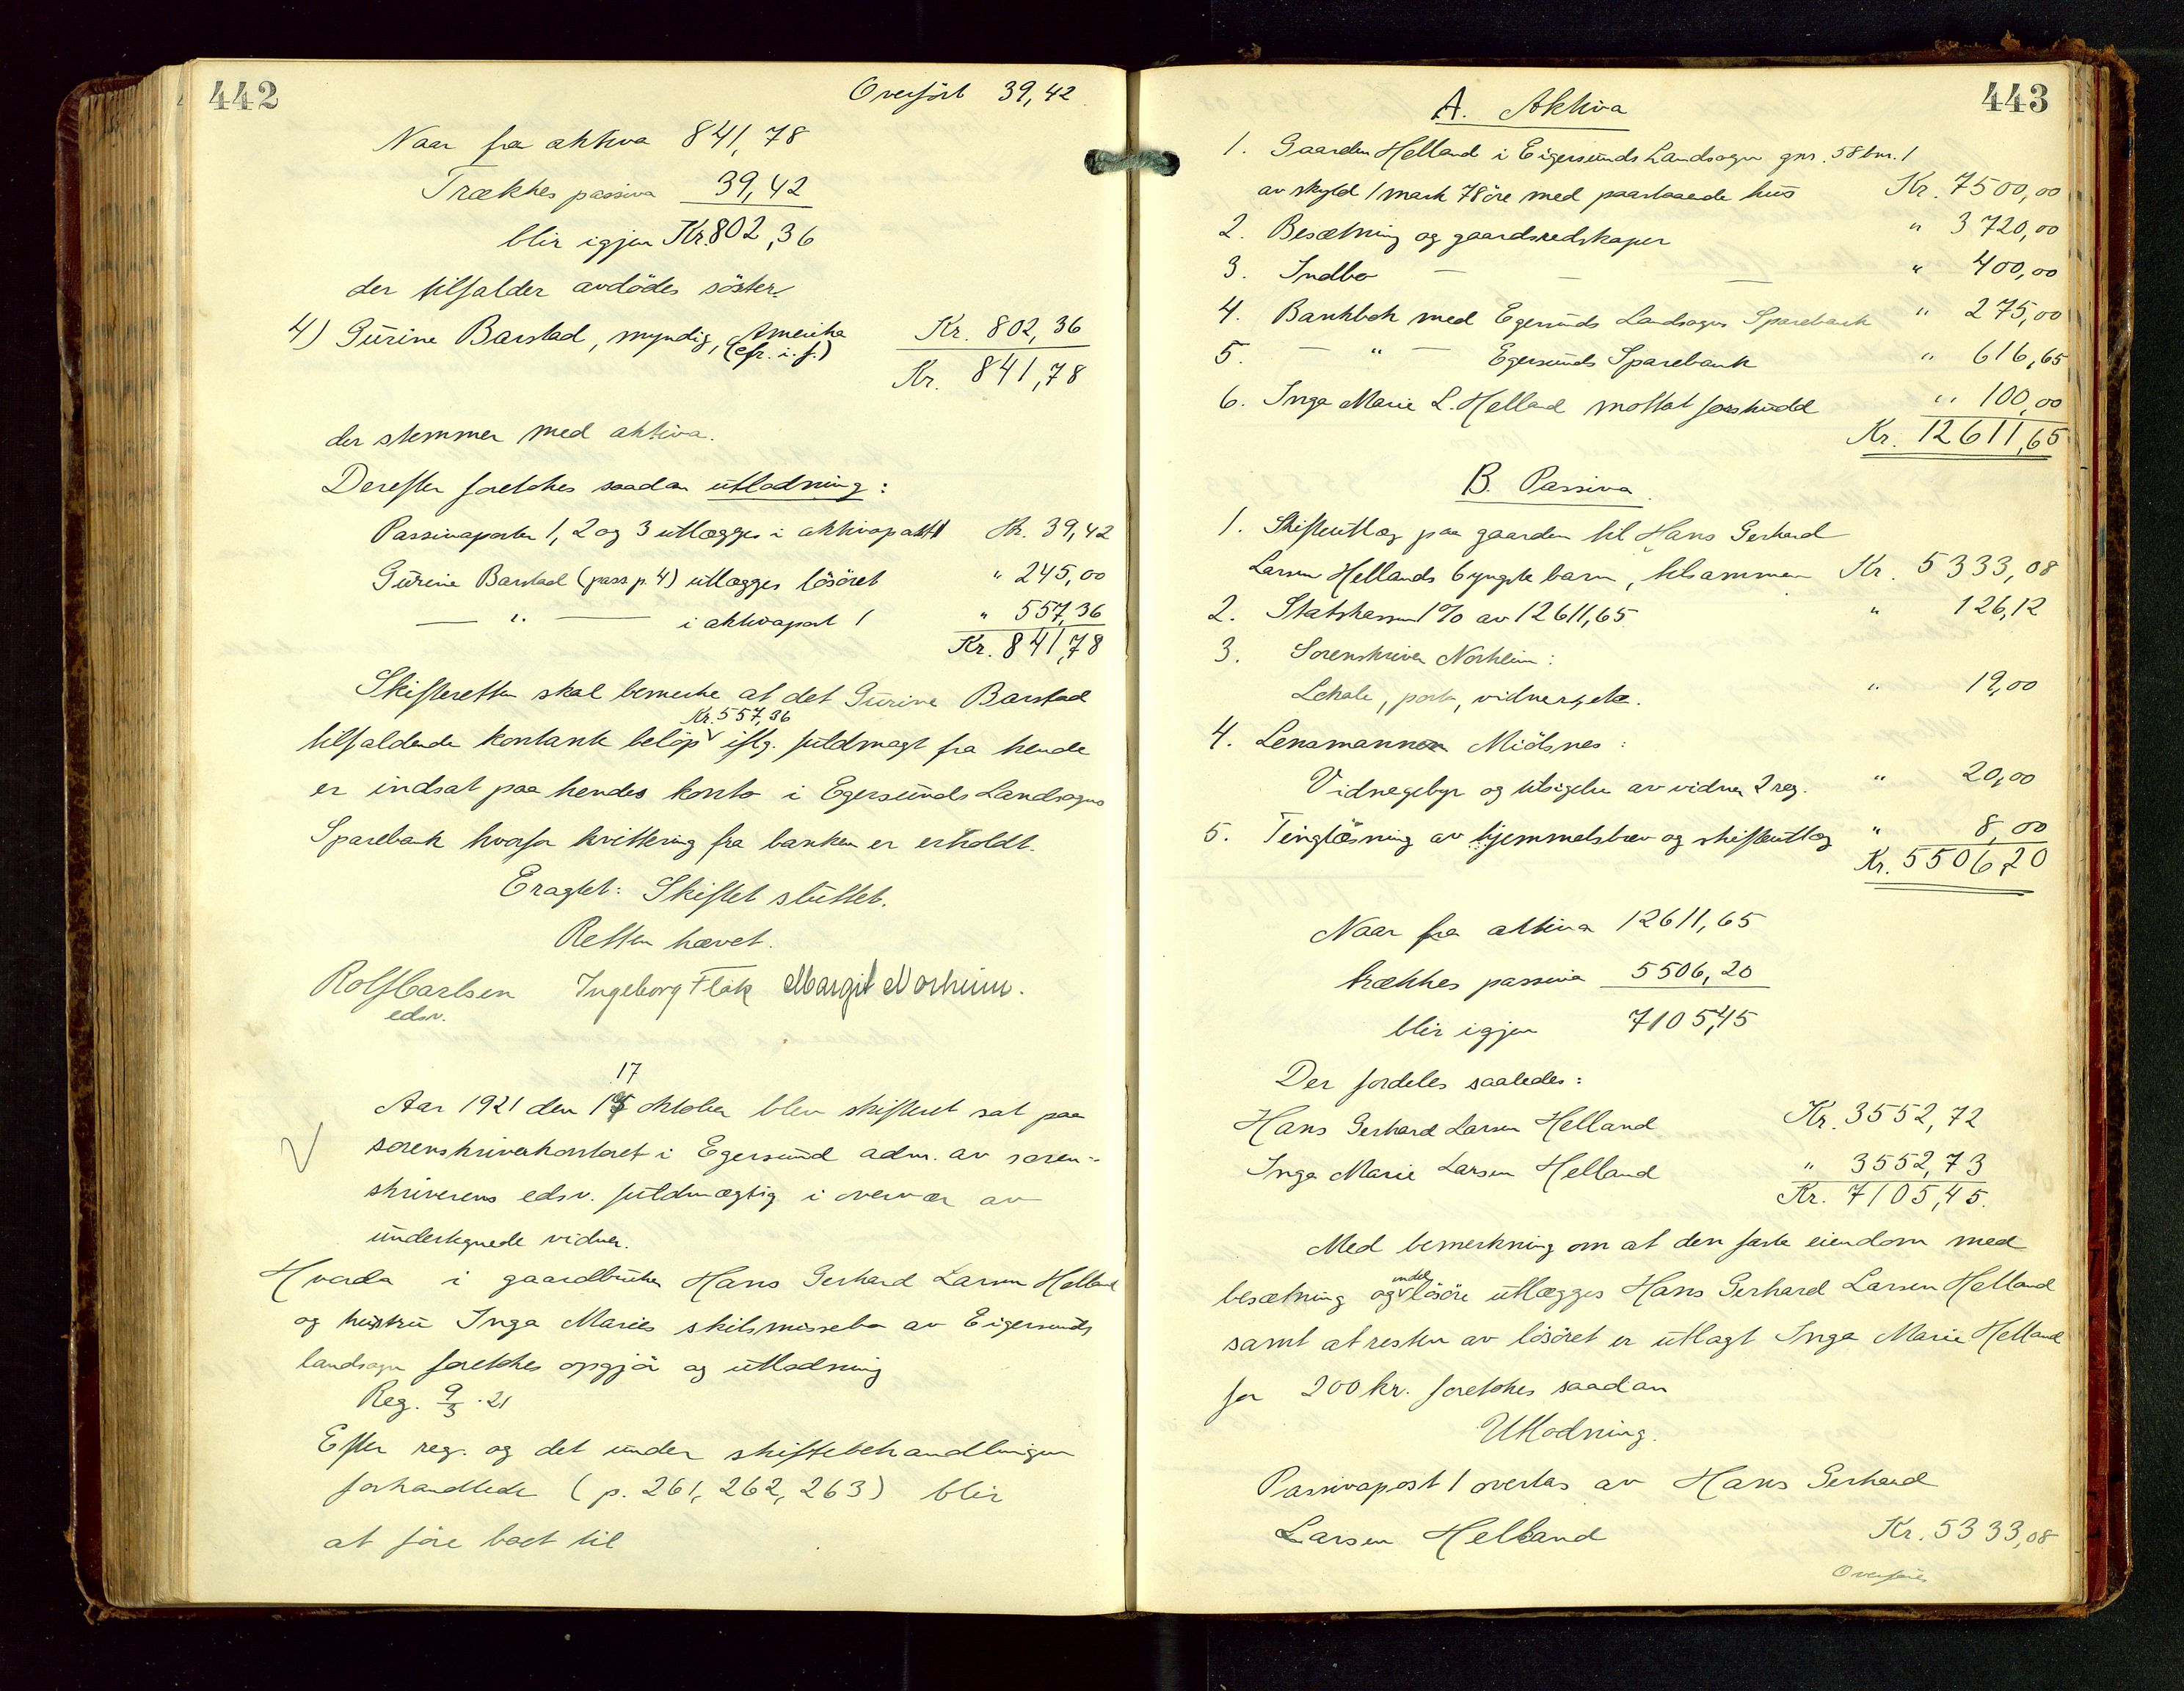 442
Overført 39,42
Naar fra aktiva 841,78
Trækkes passiva 39,42
blir igjen Kr. 802,36
der tilfalder avdödes söster.
4) Gurine Barstad, myndig, Amerika Kr. 802,36
(cfr. i. f.)
Kr. 841,78
der stemmer med aktiva.
Derefter foretokes saadan utlodning:
Passivaposten 1, 2 og 3 utlægges i aktivapost 1 Kr. 39,42
Gurine Barstad (pass p. 4) utlægges lösöret " 245,00
— " — i aktivapost 1 " 557,36
Kr. 841,78
Skifteretten skal bemerke at det Gurine Barstad
Kr. 557,36
tilfaldende kontante belöp iflg. fuldmagt fra hende
er indsat paa hendes konto i Egersunds Landsogns
Sparebank hvorfor kvittering fra banken er erholdt.
Eragtet: Skiftet sluttet.
Retten hævet.
Rolf Carlsen Ingeborg Fløk Margit Norheim.
edsv.
17
Aar 1921 den 15 oktober blev skifteret sat paa
sorenskriverkontoret i Egersund adm. av soren-
skriverens edsv. fuldmægtig i overvær av
undertegnede vidner.
Hvorda i gaardbruker Hans Gerhard Larsen Helland
og hustru Inga Maries skilsmissebo av Eigersunds
landsogn foretokes opgjör og utlodning
Reg. 9/3 . 21
Efter reg. og det under skiftebehandlingen
forhandlede (p. 261, 262, 263) blir
at före boet til
443
A. Aktiva
1. Gaarden Helland i Eigersunds Landsogn gnr. 58 bnr. 1
av skyld 1 mark 78 öre med paastaaende hus Kr. 7500,00
2. Besætning og gaardsredskaper " 3720,00
3. Indbo — — — " 400,00
4. Bankbok med Egersunds Landsogns Sparebank " 275,00
5. — " — Egersunds Sparebank " 616,65
6. Inga Marie L. Helland mottat forskudd " 100,00
Kr. 12611,65
B. Passiva.
1. Skifteutlæg paa gaarden til Hans Gerhard
Larsen Hellands 6 yngste barn, tilsammen Kr. 5333,08
2. Statskassen 1% av 12611,65 " 126,12
3. Sorenskriver Norheim:
Lokale, porto, vidner, etc. " 19,00
4. Lensmannen Miösnes:
Vidnegebyr og tilsigelse av vidner 2 reg. " 20,00
5. Tinglæsning av hjemmelsbrev og skifteutlæg " 8,00
Kr. 5506,20
Naar fra aktiva 12611,65
trækkes passiva 5506,20
blir igjen 7105,45
Der fordeles saaledes:
Hans Gerhard Larsen Helland Kr. 3552,72
Inga Marie Larsen Helland " 3552,73
Kr. 7105,45.
Med bemerkning om at den faste eiendom med
endel
besætning og lösöre utlægges Hans Gerhard Larsen Helland
samt at resten av lösöret er utlagt Inga Marie Helland
for 200 kr. foretokes saadan
Utlodning.
Passivapost 1 overtas av Hans Gerhard
Larsen Helland Kr. 5333,08
Overføres